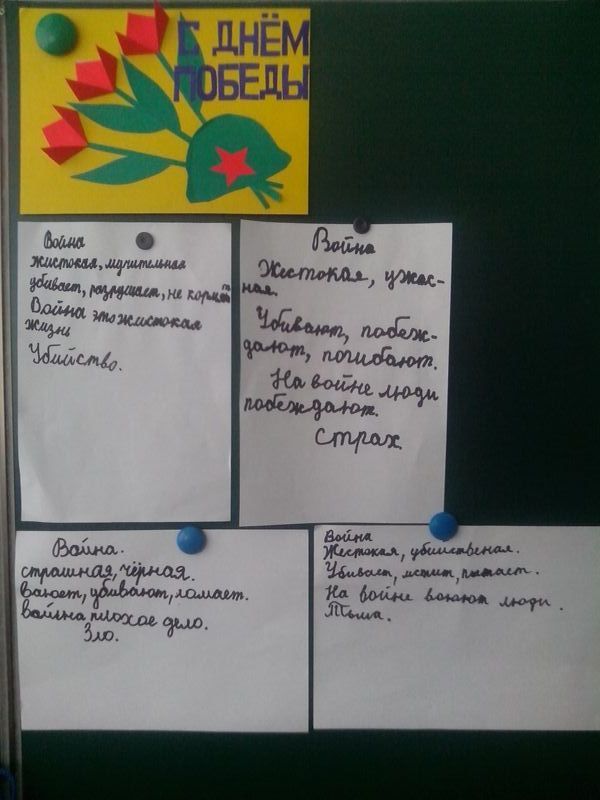 С ДНЁМ
ПОБЕДЫ
Война
жистокая, мучительная
убивает, разрушает, не кормит
Война это жистокая
жизнь
Убийство.
Война
Жестокая, ужас-
ная.
Убивают, побеж-
дают, погибают.
На войне люди
побеждают.
Страх.
Война.
страшная, чёрная.
Воюет, убивают, ломает.
Война плохое дело.
Зло.
Война
Жестокая, убийственая.
Убивает, мстит, пытает.
На войне воюют люди.
Тьма.